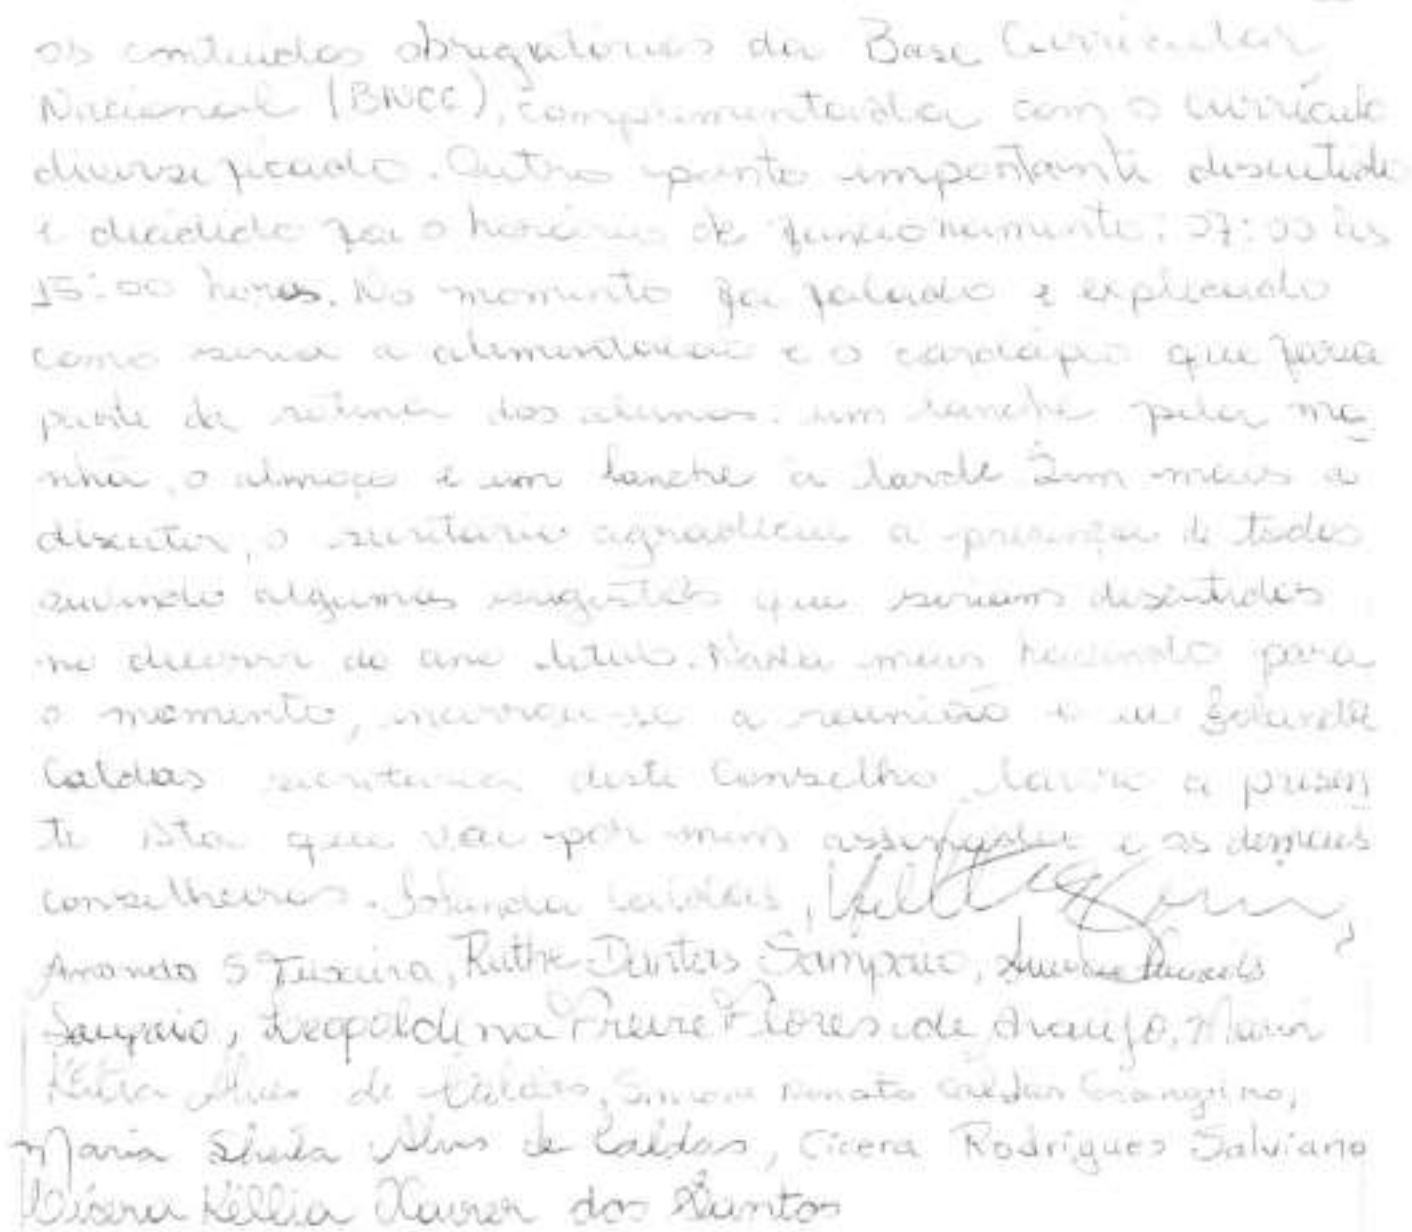 os conteúdos obrigatórios da Base Curricular
Nacional (BNCC), complementada com o currículo
diversificado. Outro ponto importante discutido
e decidido foi o horário de funcionamento: 07:00 às
15:00 horas. No momento foi falado e explicado
como seria a alimentação e o cardápio que faria
parte da rotina dos alunos: um lanche pela ma
nhã, o almoço e um lanche a tarde Sem mais a
discutir, o secretário agradeceu a presença de todos
ouvindo algumas sugestões que seriam discutidas
no decorrer do ano letivo. Nada mais havendo para
o momento, encerrou-se a reunião e eu
Caldas secretária deste Conselho, lavro a presen
te ata que vai por mim assinada e os demais
conselheiros. Caldas,
Teixeira, Ruthe Dantas Sampaio,
Sampaio, Leopoldina Freire Flores de Araujo, Maria
Alves de Caldas, Simone Renata Caldas
Maria Sheila Alves de Caldas, Cicera Rodrigues Salviano
Cicera Kéllia Xavier dos Santos